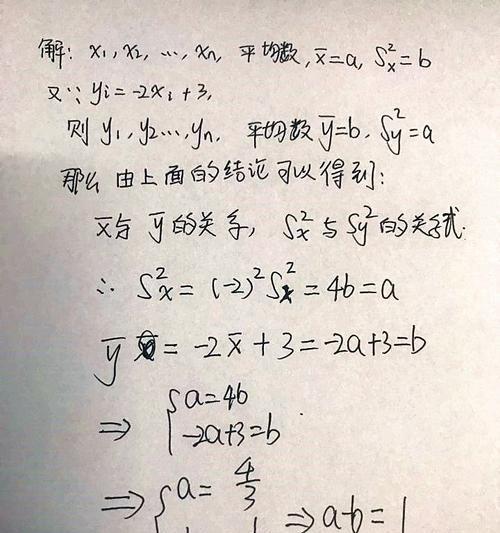 解: x₁, x₂, …, xₙ, 平均数, x̄=a, Sₓ²=b
又∵ yi=-2xi+3,
则 y₁, y₂…, yₙ, 平均数 ȳ=b, Sy²=a
那么 由上面的结论可以得到:
x̄与 ȳ的关系, Sₓ²与Sy²的关系式.
∴ Sₓ²=(-2)²Sₓ²=4b=a
ȳ=-2x̄+3=-2a+3=b
⇒ {a=4b
-2a+3=b
⇒ {a=4/3
⇒a-b=1